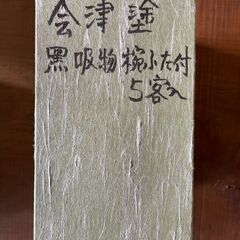 会津塗
黒吸物椀ふた付
5客入